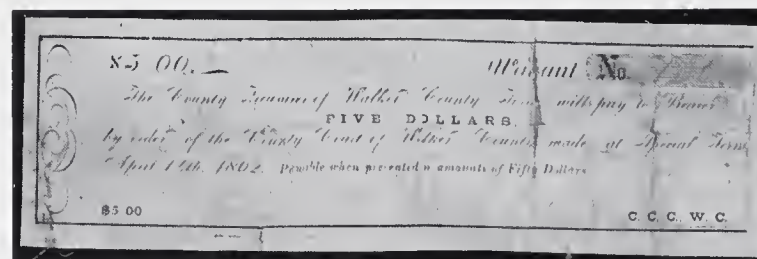 $5 00. Warrant No.
The County Treasurer of Walker County Texas will pay to Bearer
FIVE DOLLARS,
by order of the County Court of Walker County made at Special Term
April 12th, 1862. Payable when presented n amounts of Fifty Dollars
$5 00 C. C. C., W. C.